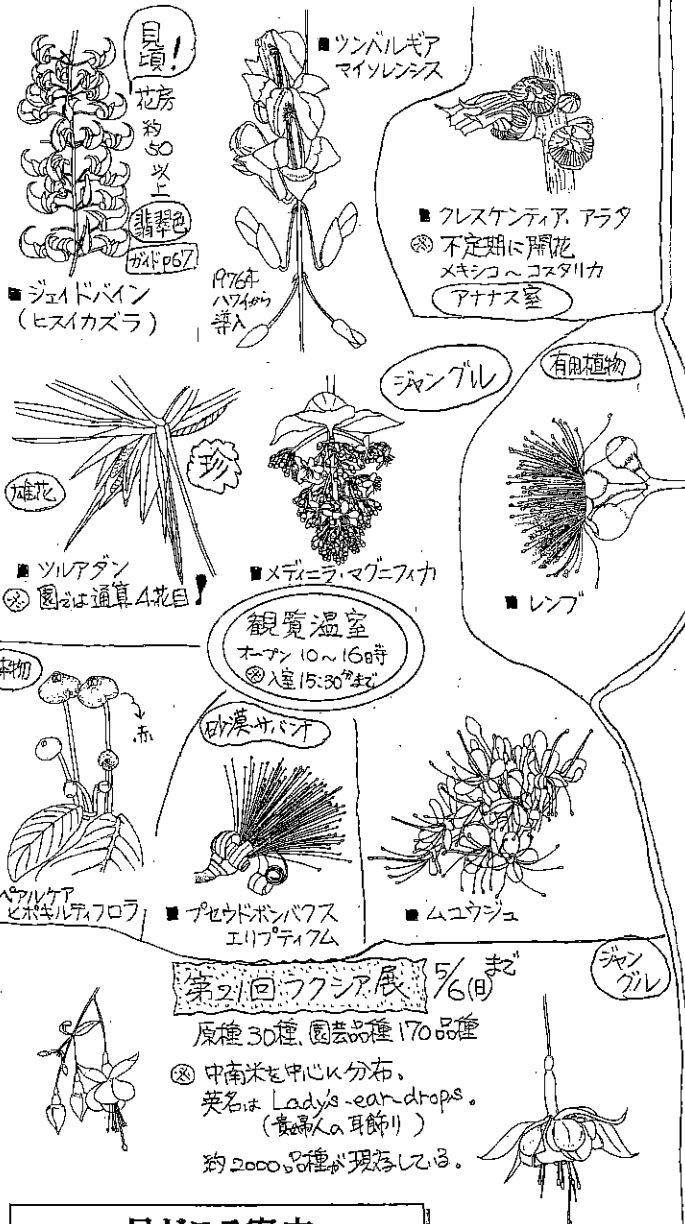 見頃!
花房
約
50
以
上
翡翠色
ガイドP67
■ ジェイドバイン
(ヒスイカズラ)
■ ツンベルギア
マイソレンシス
1976年
ハワイから
導入
■ クレスケンティア.アラタ
※ 不定期に開花
メキシコ~コスタリカ
アナナス室
ジャングル
有用植物
雄花
珍
■ ツルアダン
※ 園では通算4花目!
■ メディニラ・マグニフィカ
■ レンブ
観覧温室
オープン 10~16時
※入室15:30分まで
赤
ペアルケア
ヒポキルティフロラ
砂漠・サバンナ
■ プセウドボンバクス
エリプティクム
■ ムユウジュ
ジャングル
第21回フクシア展 5/6(日)まで
原種30種、園芸品種170品種
※ 中南米を中心に分布。
英名は Lady's-ear-drops。
(貴婦人の耳飾り)
約2000品種が現存している。